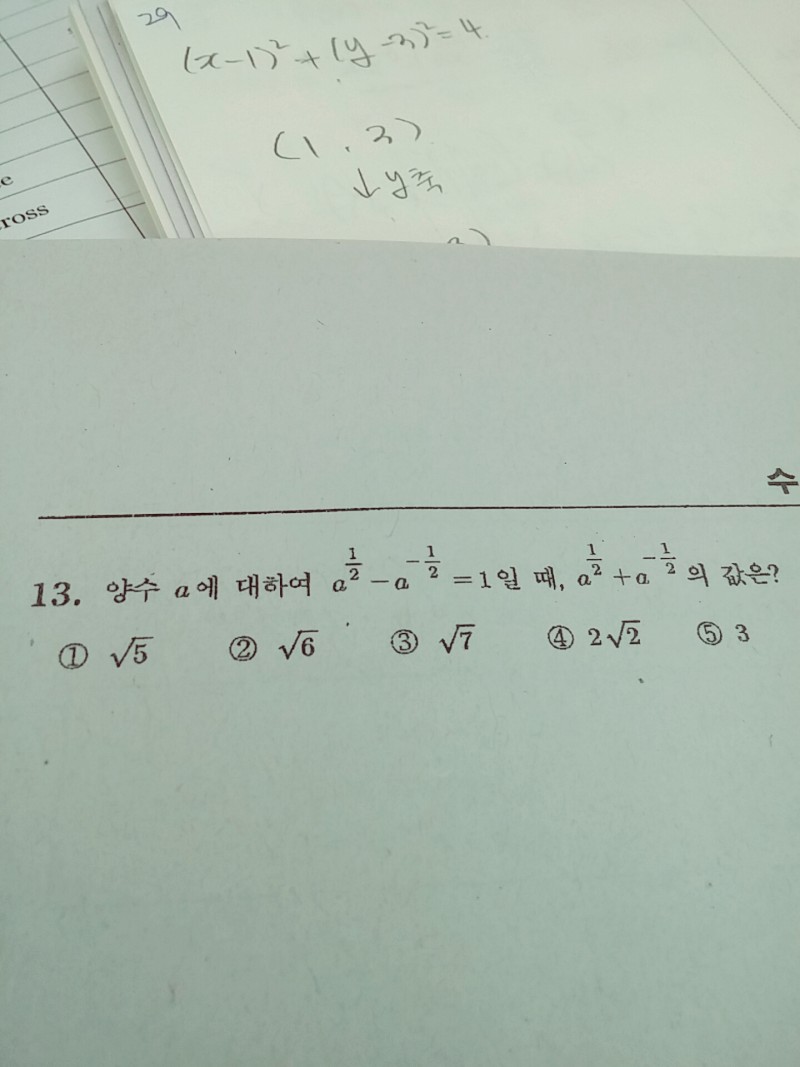 29
(x-1)²+(y-3)²=4
(1, 3)
↓y축
e
ross
수
13. 양수 a에 대하여 a^{\frac{1}{2}}-a^{-\frac{1}{2}}=1일 때, a^{\frac{1}{2}}+a^{-\frac{1}{2}}의 값은?
① √5 ② √6 ③ √7 ④ 2√2 ⑤ 3